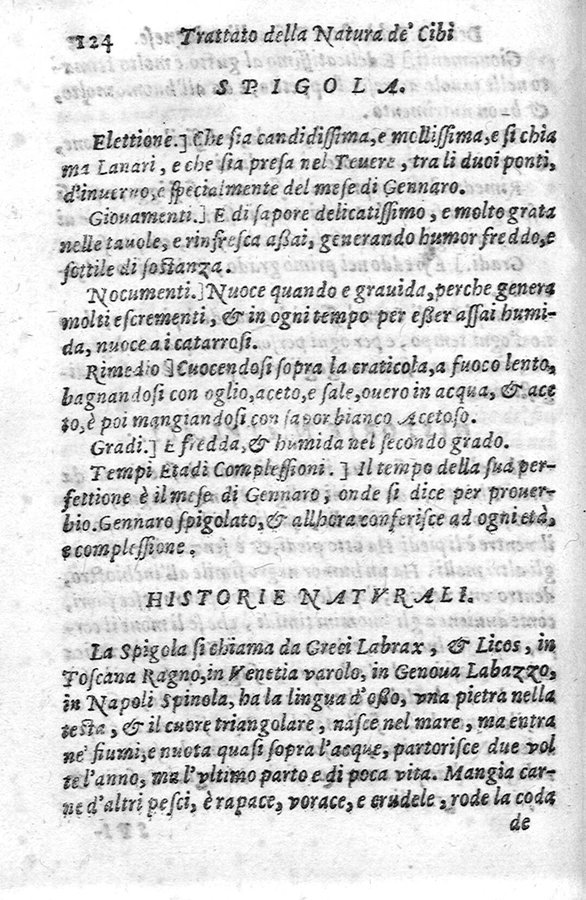 124 Trattato della Natura de' Cibi
SPIGOLA.
Elettione.] Che sia candidissima, e mollissima, e si chia
ma Lanari, e che sia presa nel Teuere, tra li duoi ponti,
d'inuerno, e specialmente del mese di Gennaro.
Giouamenti.] E di sapore delicatissimo, e molto grata
nelle tauole, e rinfresca assai, generando humor freddo, e
sottile di sostanza.
Nocumenti.] Nuoce quando e grauida, perche genera
molti escrementi, & in ogni tempo per esser assai humi-
da, nuoce a i catarrosi.
Rimedio] Cuocendosi sopra la craticola, a fuoco lento,
bagnandosi con oglio, aceto, e sale, ouero in acqua, & ace
to, è poi mangiandosi con sapor bianco Acetoso.
Gradi.] E fredda, & humida nel secondo grado.
Tempi Etadi Complessioni.] Il tempo della sua per-
fettione è il mese di Gennaro, onde si dice per prouer-
bio. Gennaro spigolato, & allhora conferisce ad ogni età,
e complessione.
HISTORIE NATVRALI.
La Spigola si chiama da Greci Labrax, & Licos, in
Toscana Ragno, in Venetia varolo, in Genoua Labazzo,
in Napoli Spinola, ha la lingua d'osso, vna pietra nella
testa, & il cuore triangolare, nasce nel mare, ma entra
ne' fiumi, e nuota quasi sopra l'acque, partorisce due vol
te l'anno, ma l'vltimo parto e di poca vita. Mangia car-
ne d'altri pesci, è rapace, vorace, e crudele, rode la coda
de